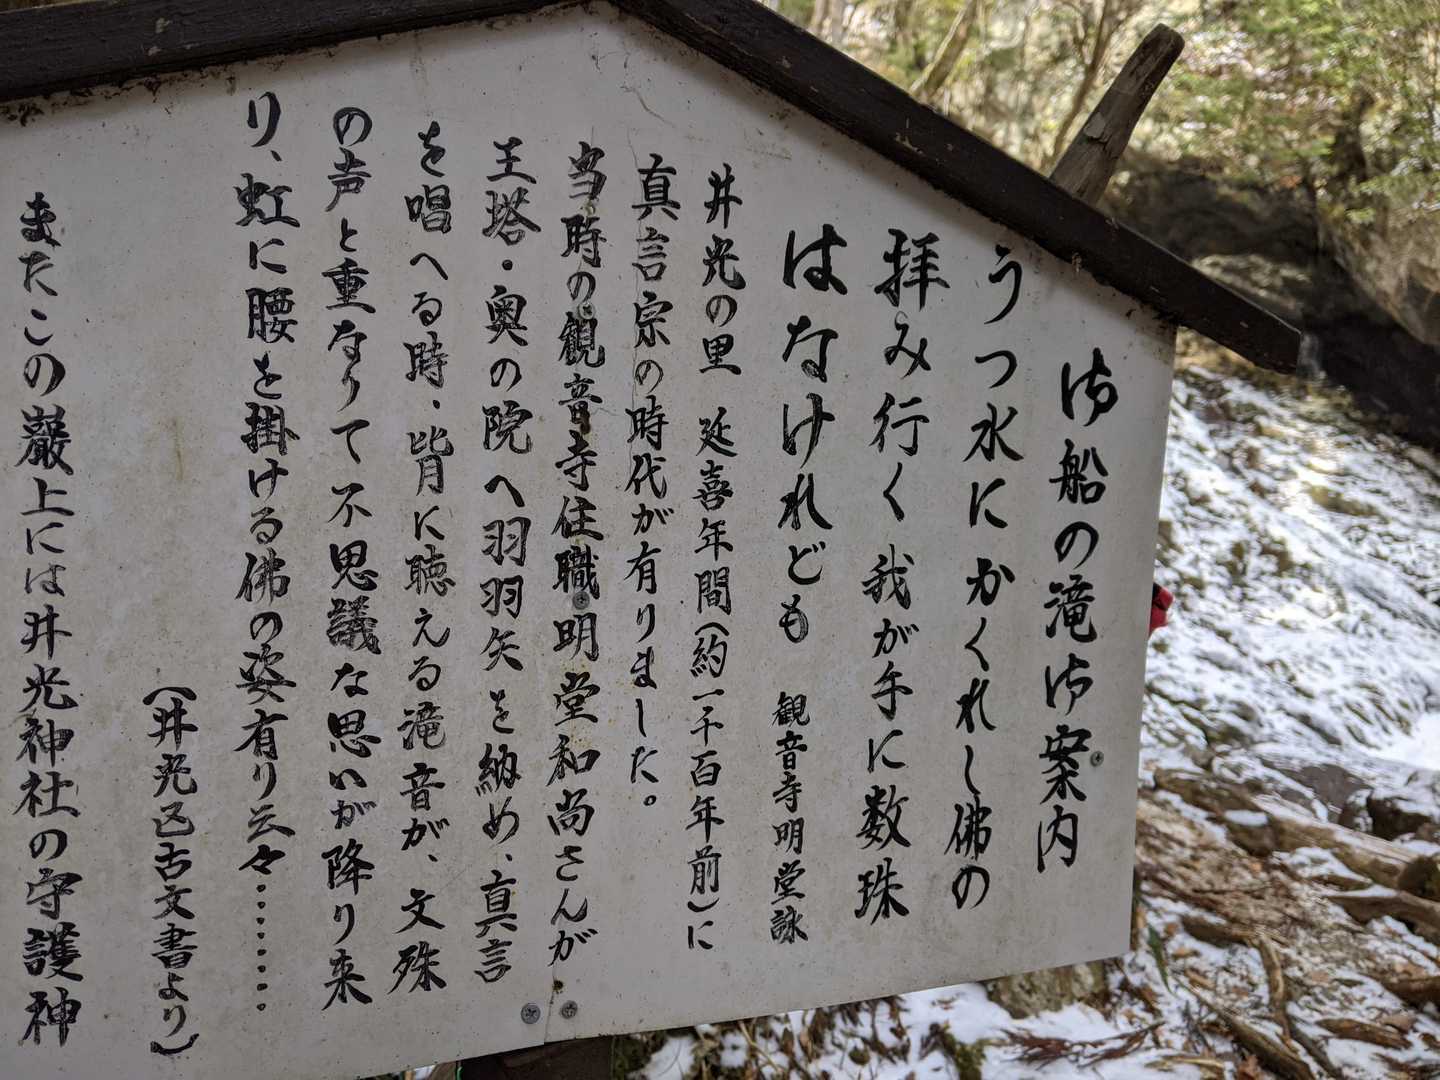 御船の滝御案内
うつ水にかくれし佛の
拝み行く我が手に数珠
はなけれども 観音寺明堂詠
井光の里 延喜年間(約一千百年前)に
真言宗の時代が有りました。
当時の観音寺住職・明堂和尚さんが
王塔・奥の院へ羽羽矢を納め、真言
を唱へる時・皆に聴える滝音が、文殊
の声と重なりて不思議な思いが降り来
り、虹に腰を掛ける佛の姿有り云々・・・・・・・
(井光区古文書より)
またこの巌上には井光神社の守護神